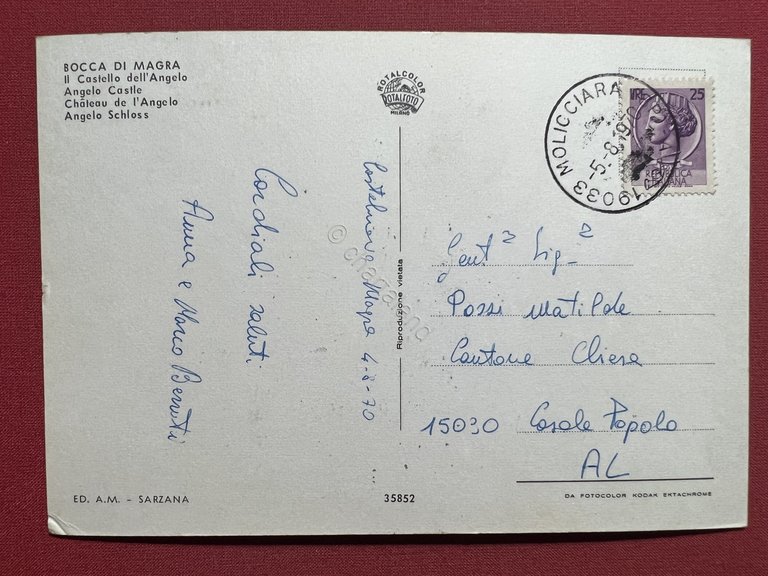 BOCCA DI MAGRA
Il Castello dell'Angelo
Angelo Castle
Château de l'Angelo
Angelo Schloss
ROTALCOLOR
ROTALFOTO
MILANO
LIRE 25
REPUBBLICA
ITALIANA
19033 MOLICCIARA
-5-8-1970
Castelnuovo Magra 4-8-70
Cordiali saluti
Anna e Marco Berruti
Riproduzione vietata
© chagaland
Gent.a Sig.a
Possi Matilde
Cantone Chiesa
15030 Casale Popolo
AL
ED. A.M. - SARZANA
35852
DA FOTOCOLOR KODAK EKTACHROME